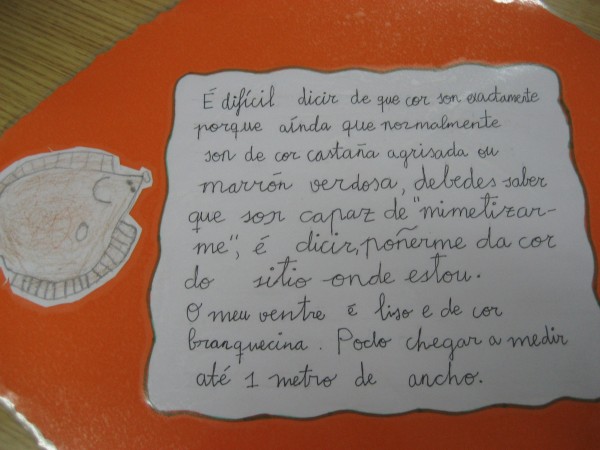 É difícil dicir de que cor son exactamente
porque aínda que normalmente
son de cor castaña agrisada ou
marrón verdosa, debedes saber
que son capaz de "mimetizar-
me", é dicir, poñerme da cor
do sitio onde estou.
O meu ventre é liso e de cor
branquecina. Podo chegar a medir
até 1 metro de ancho.